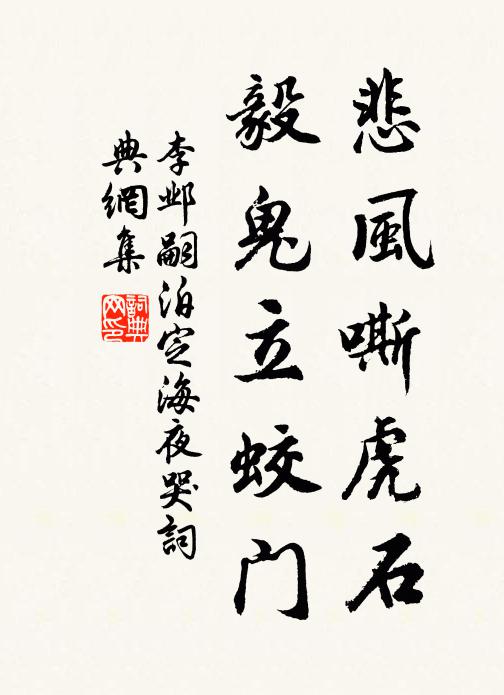 悲風嘶虎石
毅鬼立蛟门
李邺嗣泊定海夜哭詞
典網集
詞典网印